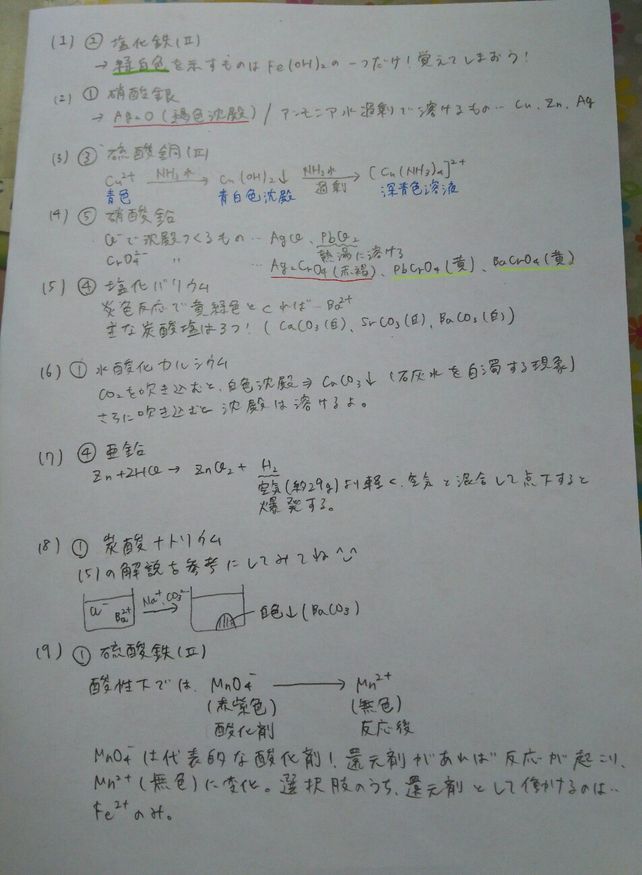 (1) ② 塩化鉄(Ⅱ)
→ 緑白色を示すものはFe(OH)₂の一つだけ！覚えてしまおう！
(2) ① 硝酸銀
→ Ag₂O(褐色沈殿) / アンモニア水過剰で溶けるもの… Cu、Zn、Ag
(3) ③ 硫酸銅(Ⅱ)
Cu²⁺ NH₃水→ Cu(OH)₂↓ NH₃水 過剰→ [Cu(NH₃)₄]²⁺
青色 青白色沈殿 深青色溶液
(4) ⑤ 硝酸鉛
Cl⁻で沈殿つくるもの… AgCl、PbCl₂
熱湯に溶ける
CrO₄²⁻ 〃 … Ag₂CrO₄(赤褐)、PbCrO₄(黄)、BaCrO₄(黄)
(5) ④ 塩化バリウム
炎色反応で黄緑色とくれば…Ba²⁺
主な炭酸塩は3つ！(CaCO₃(白)、SrCO₃(白)、BaCO₃(白))
(6) ① 水酸化カルシウム
CO₂を吹き込むと、白色沈殿⇒CaCO₃↓ (石灰水を白濁する現象)
さらに吹き込むと沈殿は溶けるよ。
(7) ④ 亜鉛
Zn+2HCl → ZnCl₂ + H₂
空気(約29g)より軽く、空気と混合して点下すると
爆発する。
(8) ① 炭酸ナトリウム
(5)の解説を参考にしてみてね
Cl⁻ Ba²⁺ Na⁺、CO₃²⁻→ 白色↓(BaCO₃)
(9) ① 硫酸鉄(Ⅱ)
酸性下では、MnO₄⁻ → Mn²⁺
(赤紫色) (無色)
酸化剤 反応後
MnO₄⁻は代表的な酸化剤！還元剤があれば反応が起こり、
Mn²⁺(無色)に変化。選択肢のうち、還元剤として働けるのは…
Fe²⁺のみ。